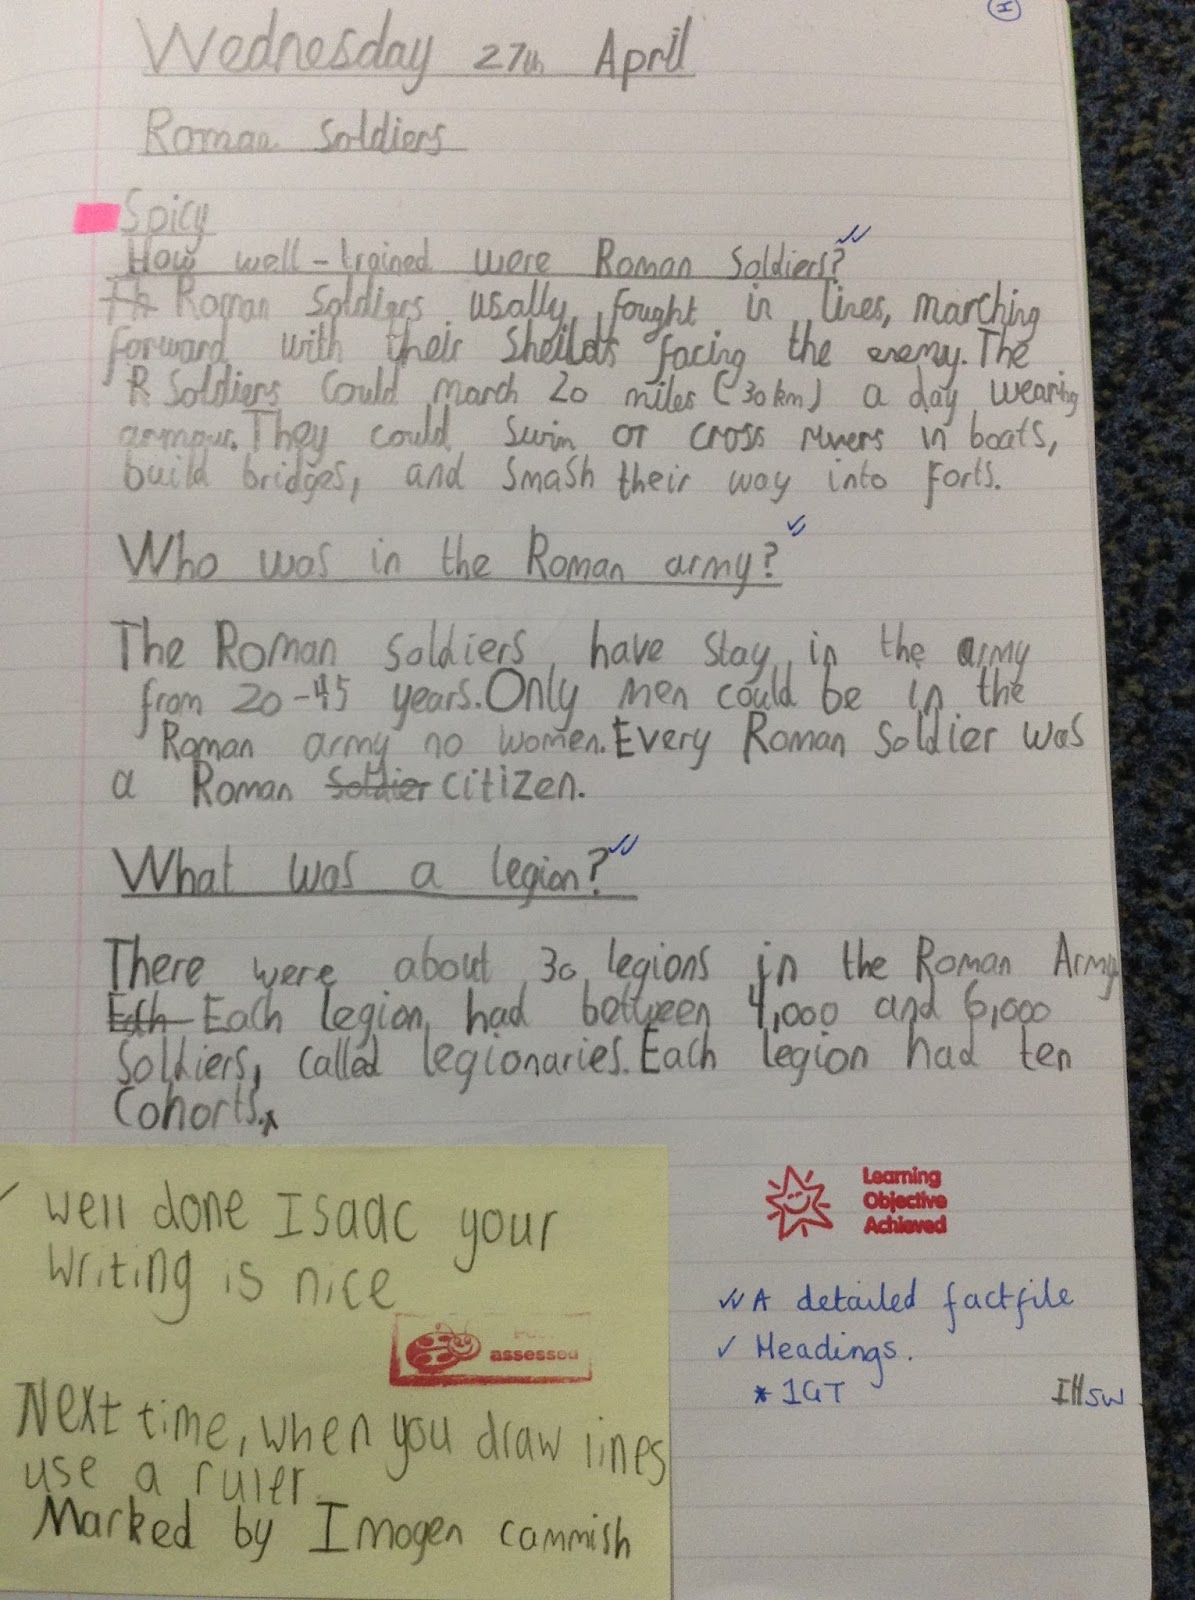 Wednesday 27th April
Roman Soldiers
Spicy
How well-trained were Roman Soldiers?
Th Roman Soldiers usally fought in lines, marching
forward with their Sheilds facing the enemy. The
R Soldiers could march 20 miles (30km) a day wearing
armour. They could swim or cross rivers in boats,
build bridges, and smash their way into forts.
Who was in the Roman army?
The Roman soldiers have stay in the army
from 20-45 years. Only men could be in the
Roman army no women. Every Roman Soldier was
a Roman Soldier citizen.
What was a legion?
There were about 30 legions in the Roman Army
Ech Each legion had between 4,000 and 6,000
Soldiers, called legionaries. Each legion had ten
Cohorts.
Well done Isaac your
writing is nice
assessed
Next time, when you draw lines
use a ruler.
Marked by Imogen cammish
Learning
Objective
Achieved
A detailed factfile
Headings.
* 1GT
IH SW